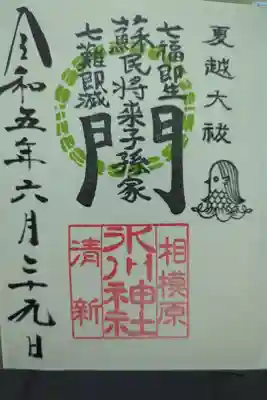 夏越大祓
七福即生
蘇民将来子孫家
七難即滅
門
令和五年六月二十九日
相模原
氷川神社
清新